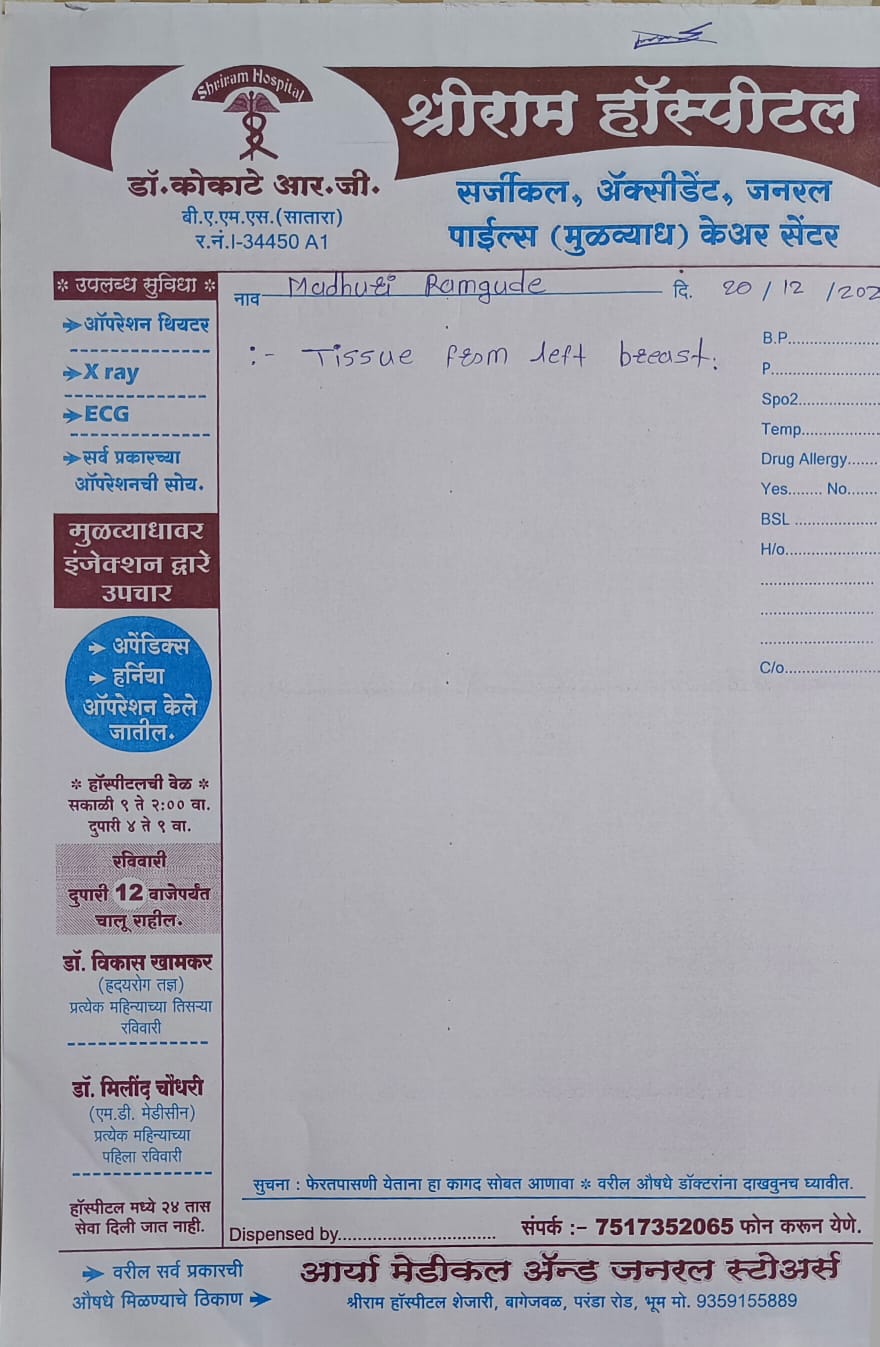 Shriram Hospital
श्रीराम हॉस्पीटल
डॉ.कोकाटे आर.जी.
बी.ए.एम.एस.(सातारा)
र.नं.I-34450 A1
सर्जीकल, ॲक्सीडेंट, जनरल
पाईल्स (मुळव्याध) केअर सेंटर
नाव Madhuri Ramgude दि. 20/12/202
:- Tissue from left breast.
B.P.
P.
Spo2
Temp
Drug Allergy
Yes........ No.......
BSL
H/o
C/o
* उपलब्ध सुविधा *
ऑपरेशन थियटर
X ray
ECG
सर्व प्रकारच्या
ऑपरेशनची सोय.
मुळव्याधावर
इंजेक्शन द्वारे
उपचार
अपेंडिक्स
हर्निया
ऑपरेशन केले
जातील.
* हॉस्पीटलची वेळ *
सकाळी ९ ते २:०० वा.
दुपारी ४ ते ९ वा.
रविवारी
दुपारी 12 वाजेपर्यंत
चालू राहील.
डॉ. विकास खामकर
(हृदयरोग तज्ञ)
प्रत्येक महिन्याच्या तिसऱ्या
रविवारी
डॉ. मिलींद चौधरी
(एम.डी. मेडीसीन)
प्रत्येक महिन्याच्या
पहिला रविवारी
हॉस्पीटल मध्ये २४ तास
सेवा दिली जात नाही.
सुचना : फेरतपासणी येताना हा कागद सोबत आणावा * वरील औषधे डॉक्टरांना दाखवुनच घ्यावीत.
Dispensed by................................ संपर्क :- 7517352065 फोन करून येणे.
वरील सर्व प्रकारची
औषधे मिळण्याचे ठिकाण
आर्या मेडीकल ॲन्ड जनरल स्टोअर्स
श्रीराम हॉस्पीटल शेजारी, बागेजवळ, परंडा रोड, भूम मो. 9359155889